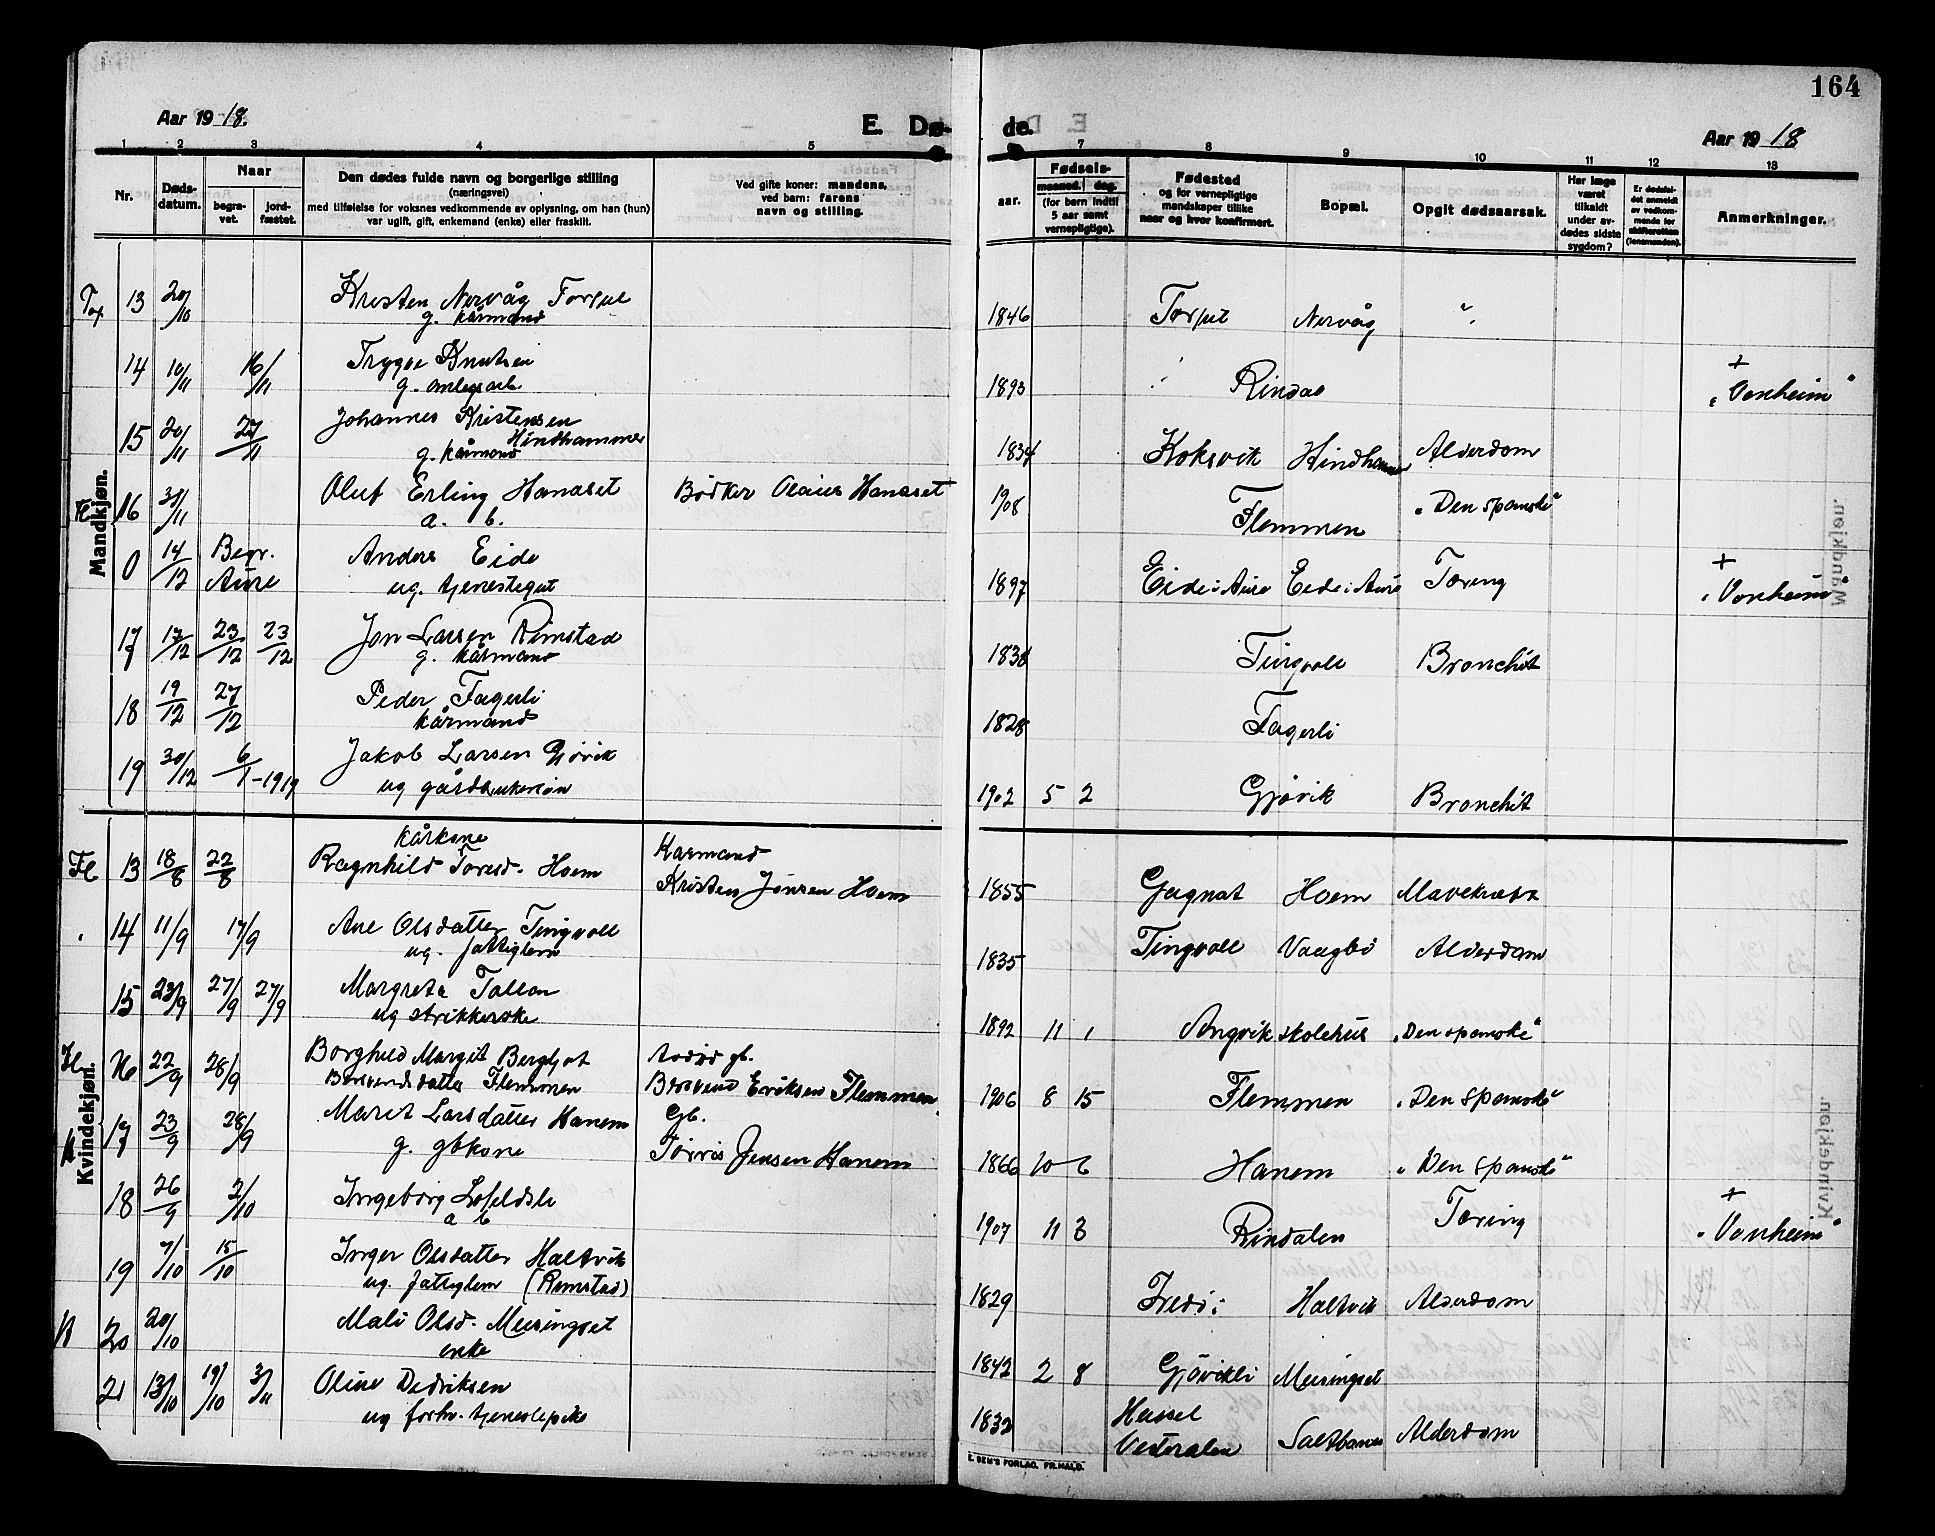 164
Aar 1918.
E. Dø- de.
Aar 1918
1 2 3 4 5 7 8 9 10 11 12 13
Nr.
Døds-datum.
Naar
begra-vet.
jord-fæstet.
Den dødes fulde navn og borgerlige stilling
(næringsvei)
med tilføielse for voksnes vedkommende av oplysning, om han (hun)
var ugift, gift, enkemand (enke) eller fraskilt.
Ved gifte koner: mandens,
ved barn: farens
navn og stilling.
aar.
Fødsels-
maaned. dag.
(for børn indtil
5 aar samt
vernepligtige).
Fødested
og for vernepligtige
mandskaper tillike
naar og hvor konfirmert.
Bopæl.
Opgit dødsaarsak.
Har læge
været
tilkaldt
under av-
dødes sidste
sygdom?
Er dødsfal-
det anmeldt
av vedkom-
mende for
skifteretten
(lensmanden).
Anmerkninger.
Mandkjøn.
13 20/10 Kristen Nervåg Torjul 1846 Torjul Nervåg "
g. kårmand
14 10/11 16/11 Trygve Knutsen 1893 Rindal + "Vonheim"
g. anlegsarb
15 20/11 27/11 Johannes Kristensen
Hindhammer
g. kårmand 1834 Koksvik Hindhammer Alderdom
Fl 16 30/11 Oluf Erling Hanaset Bødker Olaus Hanaset 1908 Flemmen "Den spanske"
a. b.
0 14/12 Begr. Aure Anders Eide 1897 Eide i Aure Eide i Aure Tæring + "Vonheim"
ug. tjenestegut
17 17/12 23/12 23/12 Jon Larsen Rimstad 1838 Tingvoll Bronchit
g. kårmand
18 19/12 27/12 Peder Fagerli 1828 Fagerli
kårmand
19 30/12 6/1-1919 Jakob Larsen Gjøvik 1902 5 2 Gjøvik Bronchit
ug gårdbrukersøn
Kvindekjøn.
kårkone
Fl 13 18/8 22/8 Ragnhild Toresd. Hoem Karmand
Kristen Jonsen Hoem 1855 Gagnat Hoem Mavekræft
14 11/9 17/9 Ane Olsdatter Tingvoll 1835 Tingvoll Vaagbø Alderdom
ug. fattiglem
15 23/9 27/9 27/9 Margreta Tallan 1892 11 1 Angvik skolehus "Den spanske"
ug strikkerske
16 22/9 28/9 Borghild Margit Bergljot gb.
Flemmen Eriksen Flemmen 1906 8 15 Flemmen "Den spanske"
17 23/9 28/9 Marit Larsdatter Hanem Gb.
g. gbkone Jensen Hanem 1866 10 6 Hanem "Den spanske"
18 26/9 2/10 Ingeborg 1907 11 3 Rindalen Tæring + "Vonheim"
a b
19 7/10 15/10 Inger Olsdatter Haltvik 1829 Fredø Haltvik Alderdom
ug. fattiglem (Rimstad)
20 20/10 Mali Olsd. Meisingset 1842 2 8 Gjøvikli Meisingset
enke
21 13/10 19/10 3/11 Oline Dedriksen 1832 Hassel
Vesteralen Alderdom
ug forhv. tjenestepike
E. SEM'S FORLAG, FR.HALD.